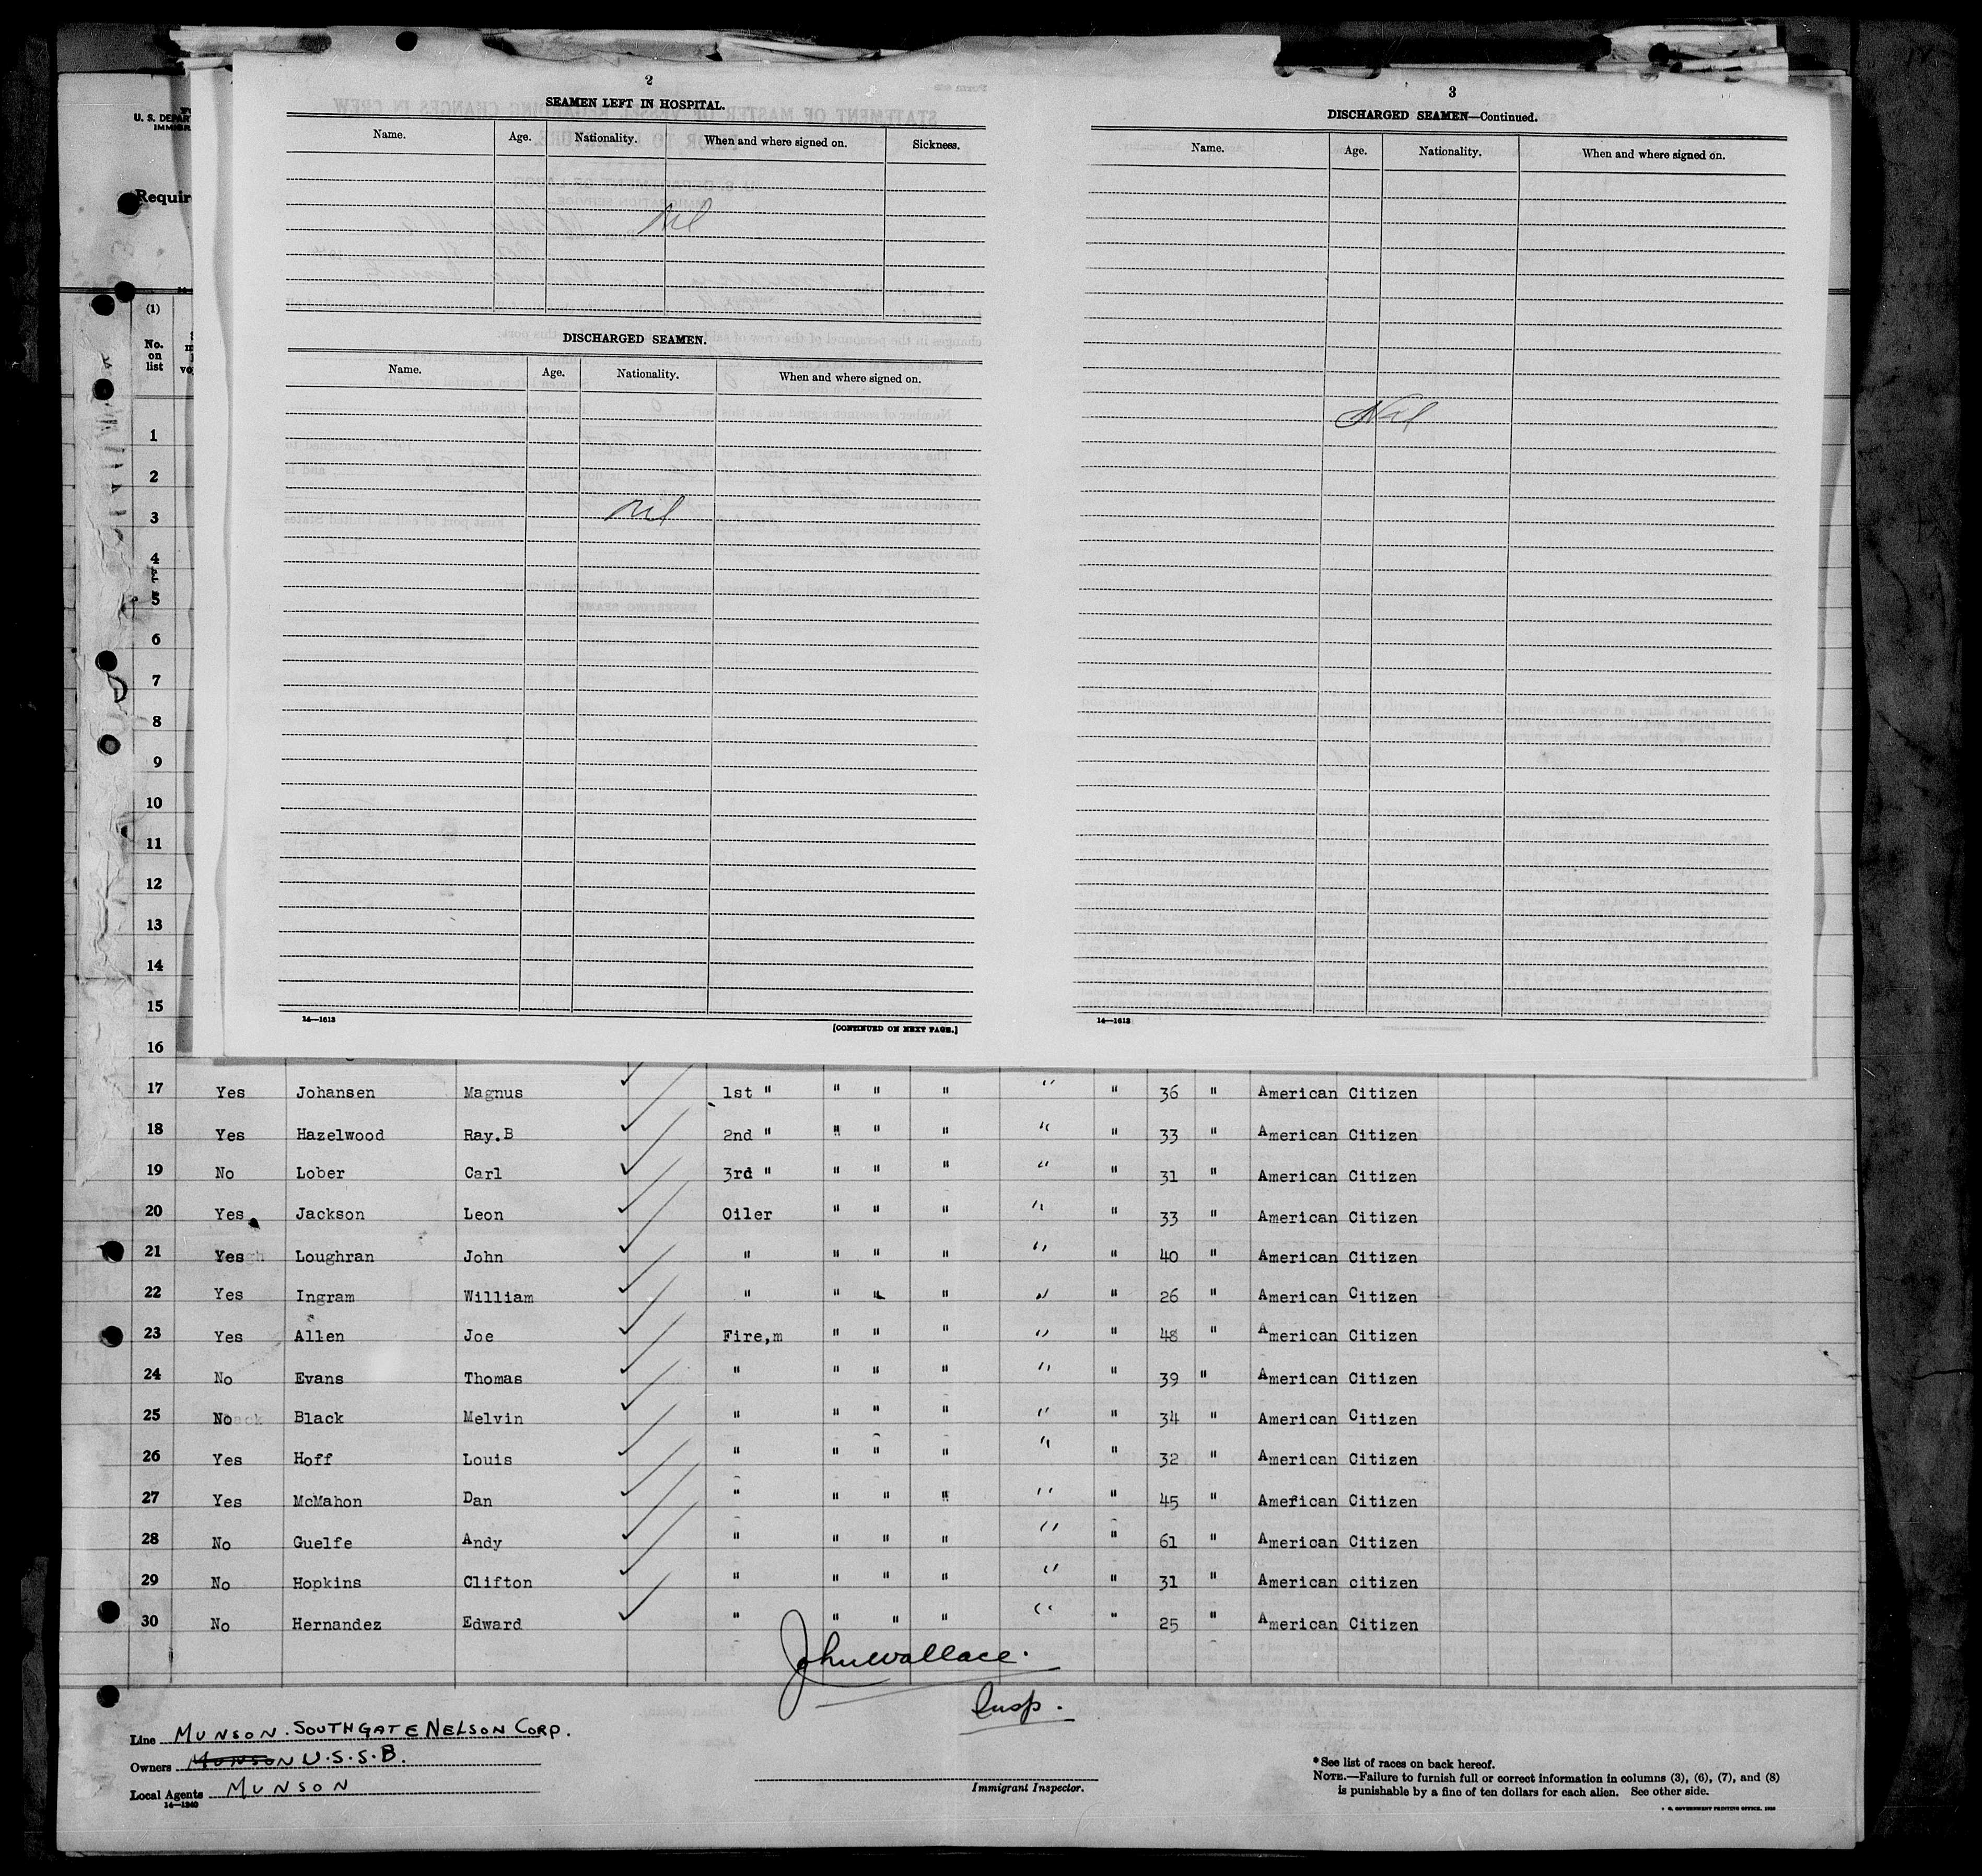 2
SEAMEN LEFT IN HOSPITAL.
Name. Age. Nationality. When and where signed on. Sickness.
Nil
DISCHARGED SEAMEN.
Name. Age. Nationality. When and where signed on.
Nil
14—1613 [CONTINUED ON NEXT PAGE.]
3
DISCHARGED SEAMEN—Continued.
Name. Age. Nationality. When and where signed on.
Nil
14—1613
U. S. DEPAR
IMMIGR
Requir
(1)
No.
on
list
1
2
3
4
5
6
7
8
9
10
11
12
13
14
15
16
17 Yes Johansen Magnus 1st " " " " " " 36 " American Citizen
18 Yes Hazelwood Ray.B 2nd " " " " " " 33 " American Citizen
19 No Lober Carl 3rd " " " " " " 31 " American Citizen
20 Yes Jackson Leon Oiler " " " " " 33 " American Citizen
21 Yes Loughran John " " " " " " 40 " American Citizen
22 Yes Ingram William " " " " " " 26 " American Citizen
23 Yes Allen Joe Fire,m " " " " " 48 " American Citizen
24 No Evans Thomas " " " " " " 39 " American Citizen
25 No Black Melvin " " " " " " 34 " American Citizen
26 Yes Hoff Louis " " " " " " 32 " American Citizen
27 Yes McMahon Dan " " " " " " 45 " American Citizen
28 No Guelfe Andy " " " " " " 61 " American Citizen
29 No Hopkins Clifton " " " " " " 31 " American citizen
30 No Hernandez Edward " " " " " " 25 " American Citizen
John Wallace.
Insp.
Line MUNSON. SOUTHGATE NELSON CORP.
Owners MUNSON U.S.S.B.
Local Agents MUNSON
14—1240
Immigrant Inspector.
* See list of races on back hereof.
NOTE.—Failure to furnish full or correct information in columns (3), (6), (7), and (8)
is punishable by a fine of ten dollars for each alien. See other side.